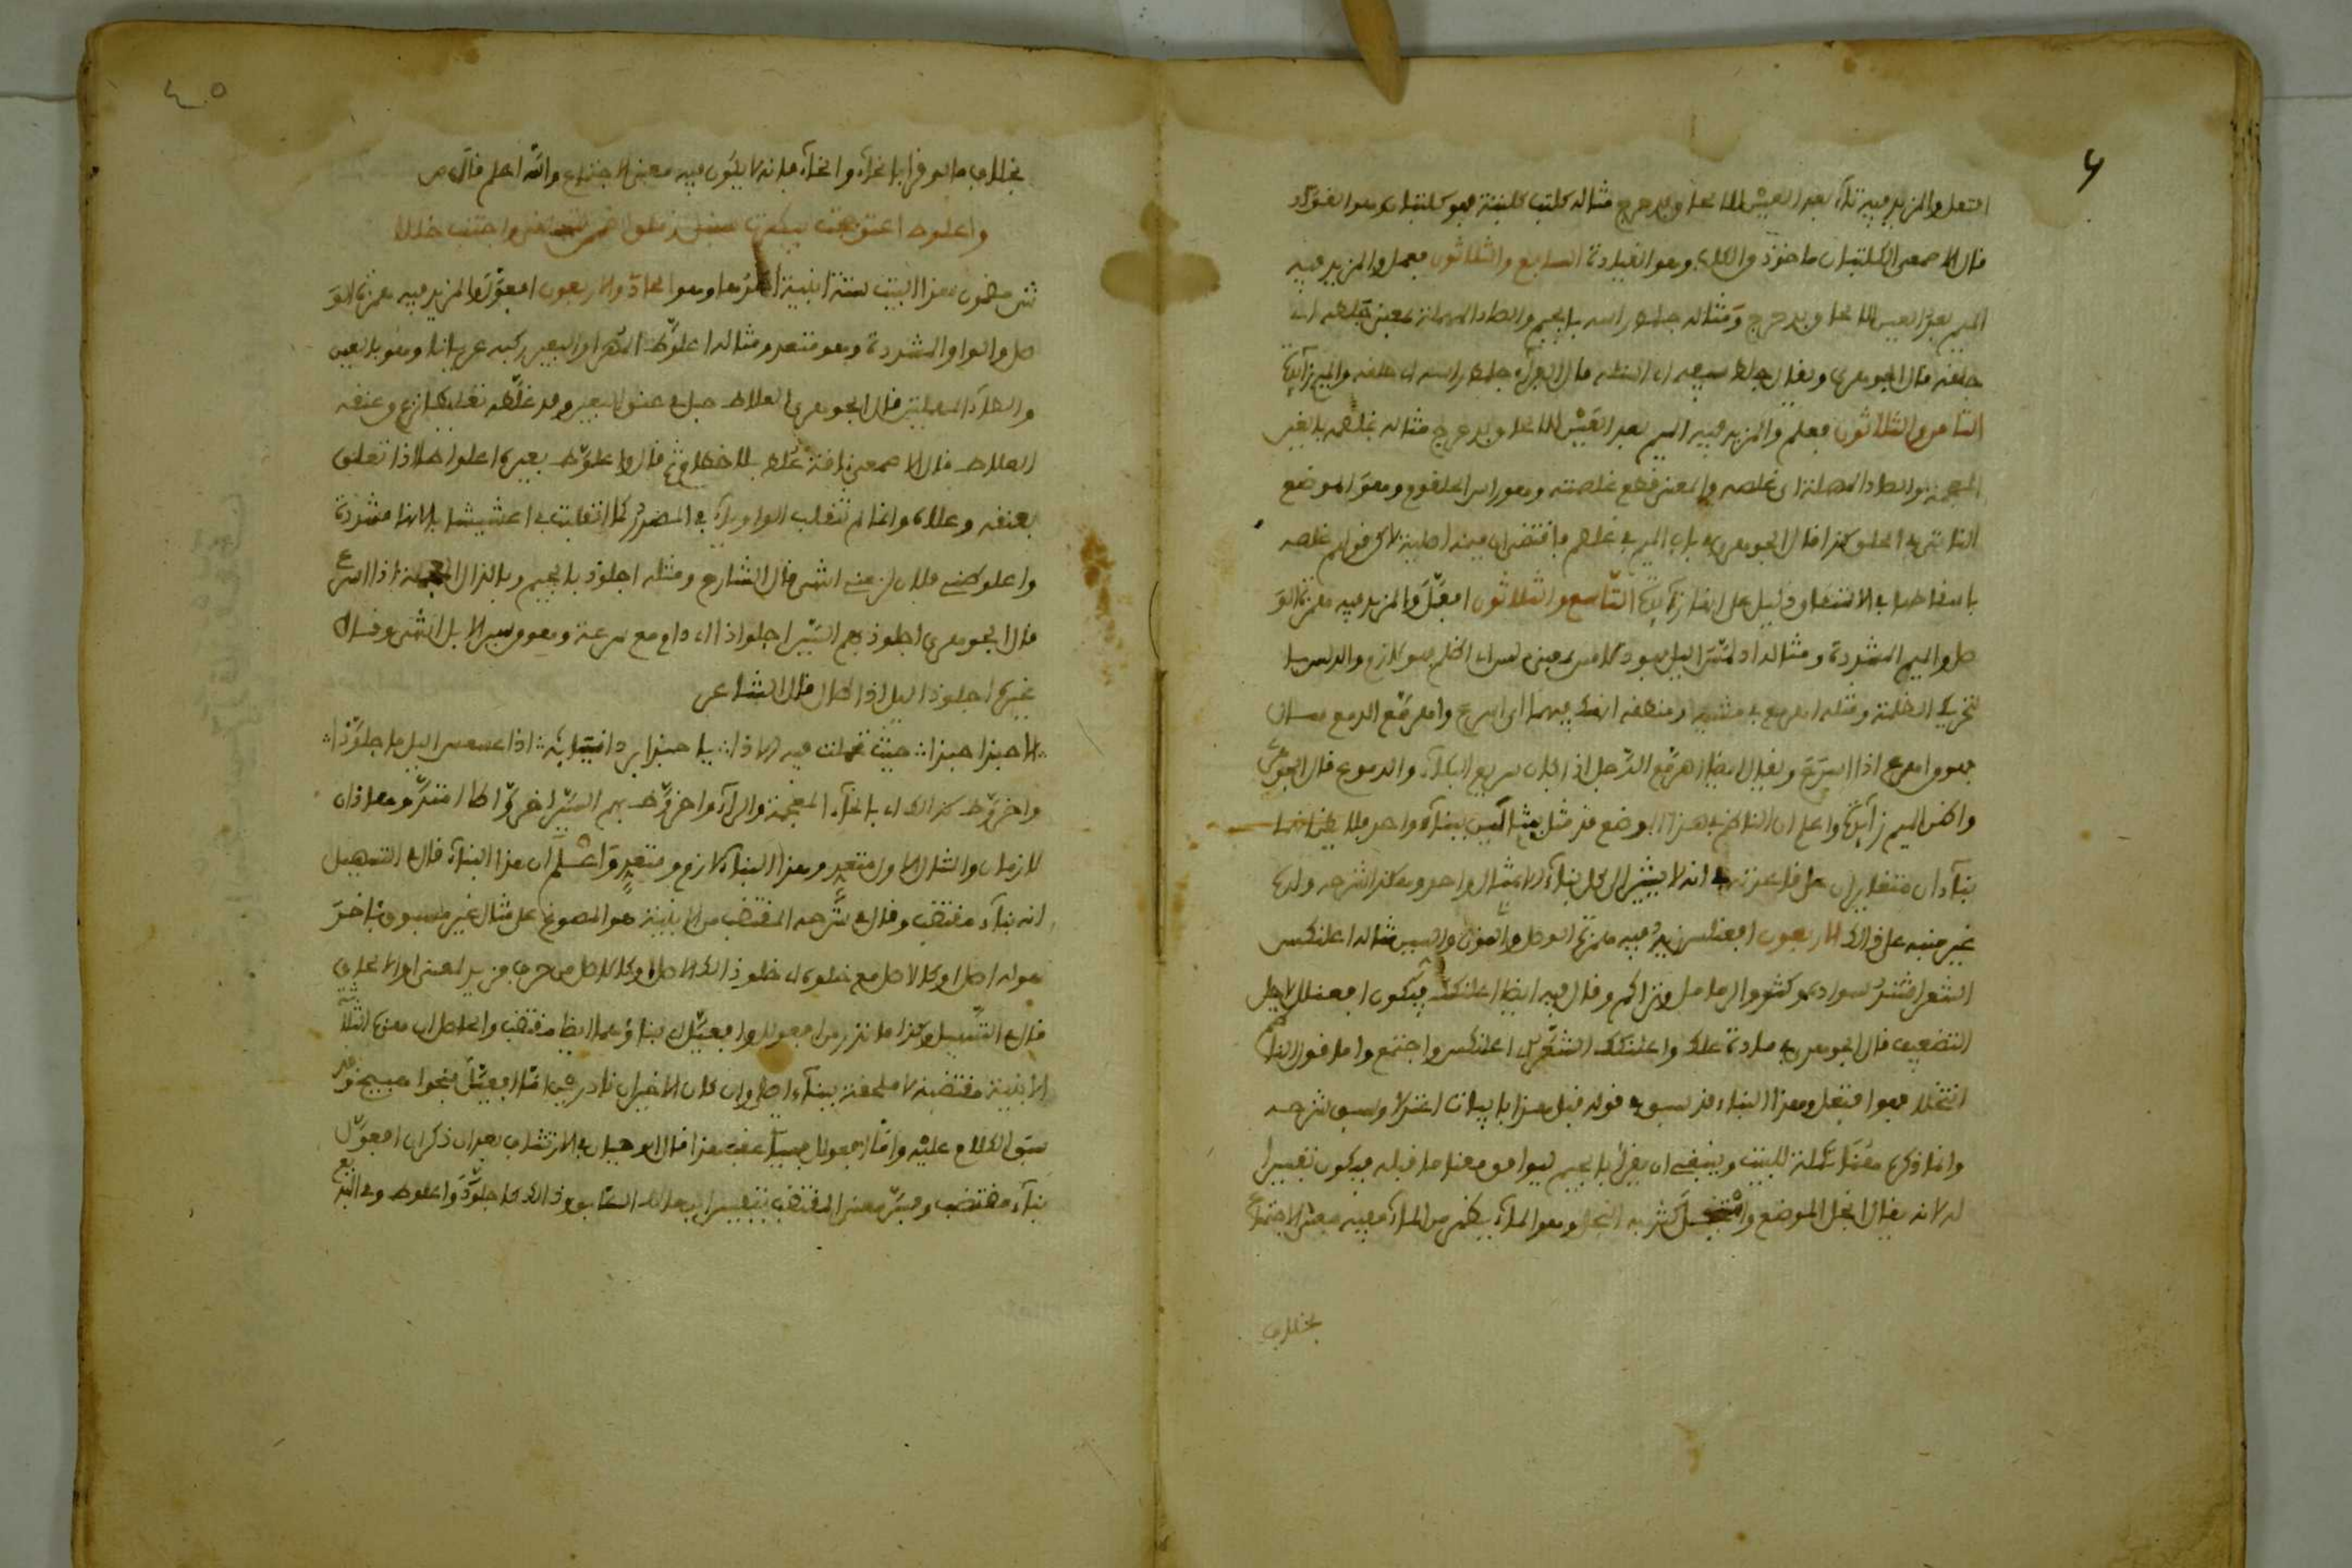 افتعل والمزيد فيه تاء بعد العين للالحاق بدحرج مثاله كلتب كلتبة فهو كلتبان وهو القواد
قال الاصمعي الكلتبان ماخوذ من الكلب وهو القيادة السابع والثلاثون فعمل والمزيد فيه
الميم بعد العين للالحاق بدحرج ومثاله جلمط راسه بالجيم والطاء المهملة بمعنى جلطه اي
حلقه قال الجوهري ويقال جلط سيفه اي استله قال الفراء جلمط راسه اي حلقه والميم زائدة
الثامن والثلاثون فعلم والمزيد فيه الميم بعد العين للالحاق بدحرج مثاله غلصمه بالغين
المعجمة والصاد المهملة اي غلصه والمعنى قطع غلصمته وهو راس الحلقوم وهو الموضع
الناتئ في الحلق كذا قال الجوهري في باب الميم في غلصم فاقتضى ان ميمه اصلية لاكن قولهم غلصه
باسقاطها في الاشتقاق دليل على انها زائدة التاسع والثلاثون افعمل والمزيد فيه همزة الو
صل والميم المشددة ومثاله ادلمس اليل فهو دلامس بمعنى ادلس اي اظلم فهو لازم والدلس بال
تحريك الظلمة ومثله اهرمع في مشيه ومنطقه انهمك فيهما اي اسرع واهرمع الدمع سال
وهو من اهرع اذا اسرع ويقال ايضا اهرمع الرجل اذا كان سريع البكاء والدموع قال الجوهري
واظن الميم زائدة واعلم ان الناظم في هذا الموضع قد مثل بمثالين لبناء واحد فلا يظن انهما
بناءان متغايران على قاعدته في انه لا يشير الى كل بناء الا بمثال واحد وهكذا شرحه ولده
غير منبه على ذالك الاربعون افعنلس زيد فيه همزة الوصل والنون والسين مثاله اعلنكس
الشعر اشتد سواده وكثر والرمل تراكم وقال فيه ايضا اعلنكك فيكون افعنلل لاجل
التضعيف قال الجوهري في مادة علك واعلنكك الشعر اي اعلنكس واجتمع واما قول الناظم
انتخلا فهو افتعل وهذا البناء قد سبق في قوله قبل هذا بابيات اعتزلا وسبق شرحه
وانما ذكره هنا تكملة للبيت وينبغي ان يقرا بالجيم ليوافق معناه ما قبله فيكون تفسيرا
له لانه يقال انجل الموضع وانتجل كثر به النجل وهو الماء يظهر من الماء ففيه معنى الاجتماع
بخلاف
بخلاف ما لو قرا بالخاء وانخاء فانه لا يكون فيه معنى الاجتماع والله اعلم قال ص
واعلوط اعثوججت بيطرت سنبل زملق اضممن تسلقى واجتنب خللا
ش ضمن هذا البيت ستة ابنية احدها وهو الحادي والاربعون افعول والمزيد فيه همزة الو
صل والواو المشددة وهو متعد ومثاله اعلوط المهر او البعير ركبه عريانا وهو بالعين
والطاء المهملتين قال الجوهري العلاط حبل في عنق البعير وقد علطه تعليطا نزع من عنقه
العلاط قال الاصمعي ناقة علط بلا خطام ثم قال واعلوط بعيره اعلواطا اذا تعلق
بعنقه وعلاه وانما لم تنقلب الواو ياء في المصدر كما انقلبت في اعشيشابا لانها مشددة
واعلوطني فلان لزمني انتهى قال الشارح ومثله اجلوذ بالجيم وبالذال المعجمة اذا اسرع
قال الجوهري اجلوذ بهم السير اجلواذا اي دام مع سرعة وهو من سير الابل انتهى وقال
غيره اجلوذ اليل اذا طال قال الشاعر
الا حبذا حبذا حبذا حبيب تحملت فيه الاذى يا حبذا برد انيابه اذا عسعس اليل فاجلوذا
واخروط كذالك بالخاء المعجمة والراء واخروط بهم السير اخرواطا امتد وهاذان
لازمان والمثال الاول متعد وهذا البناء لازم ومتعد واعلم ان هذا البناء قال في التسهيل
انه بناء مقتضب وقال في شرحه المقتضب من الابنية هو المصوغ على مثال غير مسبوق باخر
هو له اصل او كالاصل مع خلوه اي خلو ذالك الاصل او كالاصل من حرف مزيد لمعنى او لالحاق
قال في التسهيل وكذا ما ندر من افعولل وافعيل اي بناؤهما ايضا مقتضب والحاصل ان هذه الثلاثة
الابنية مقتضبة لا ملحقة ببناء اصلي وان كان الاخيران نادرين اما افعيل فنحو اهبيخ وقد
سبق الكلام عليه واما افعولل فسياتي عقب هذا قال ابو حيان في الارتشاف بعد ان ذكر ان افعول
بناء مقتضب وفسر معنى المقتضب بتفسير ابن مالك السابق وذالك كاجلوذ واعلوط وفي البديع